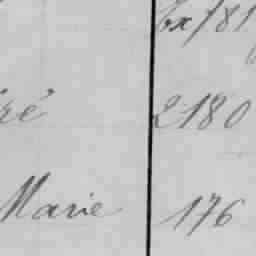 ré 2180
Marie 176